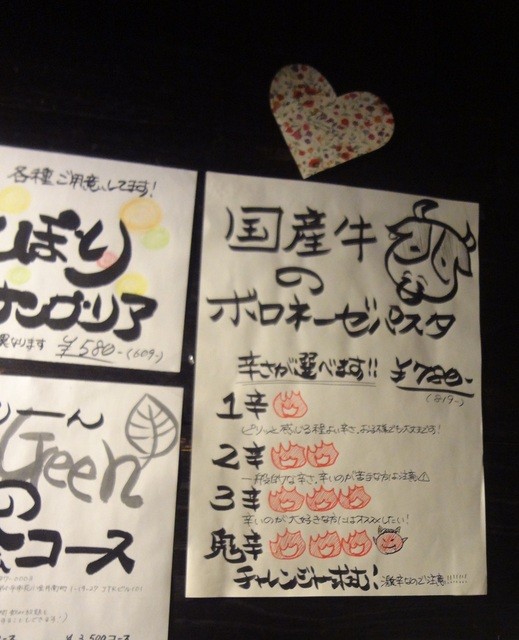 各種ご用意してます!
しぼり
サングリア
異なります ¥580-(609-)
国産牛
の
ボロネーゼパスタ
辛さが選べます!! ¥780-
(819-)
1辛
ピリッと感じる程よい辛さ、お子様でも大丈夫です!
2辛
一般的な辛さ、辛いのが苦手な方は注意⚠
3辛
辛いのが大好きな方にはオススメしたい!
鬼辛
チャレンジャー求む! 激辛なのでご注意!!!!!!
Green
の
コース
¥3,500コース